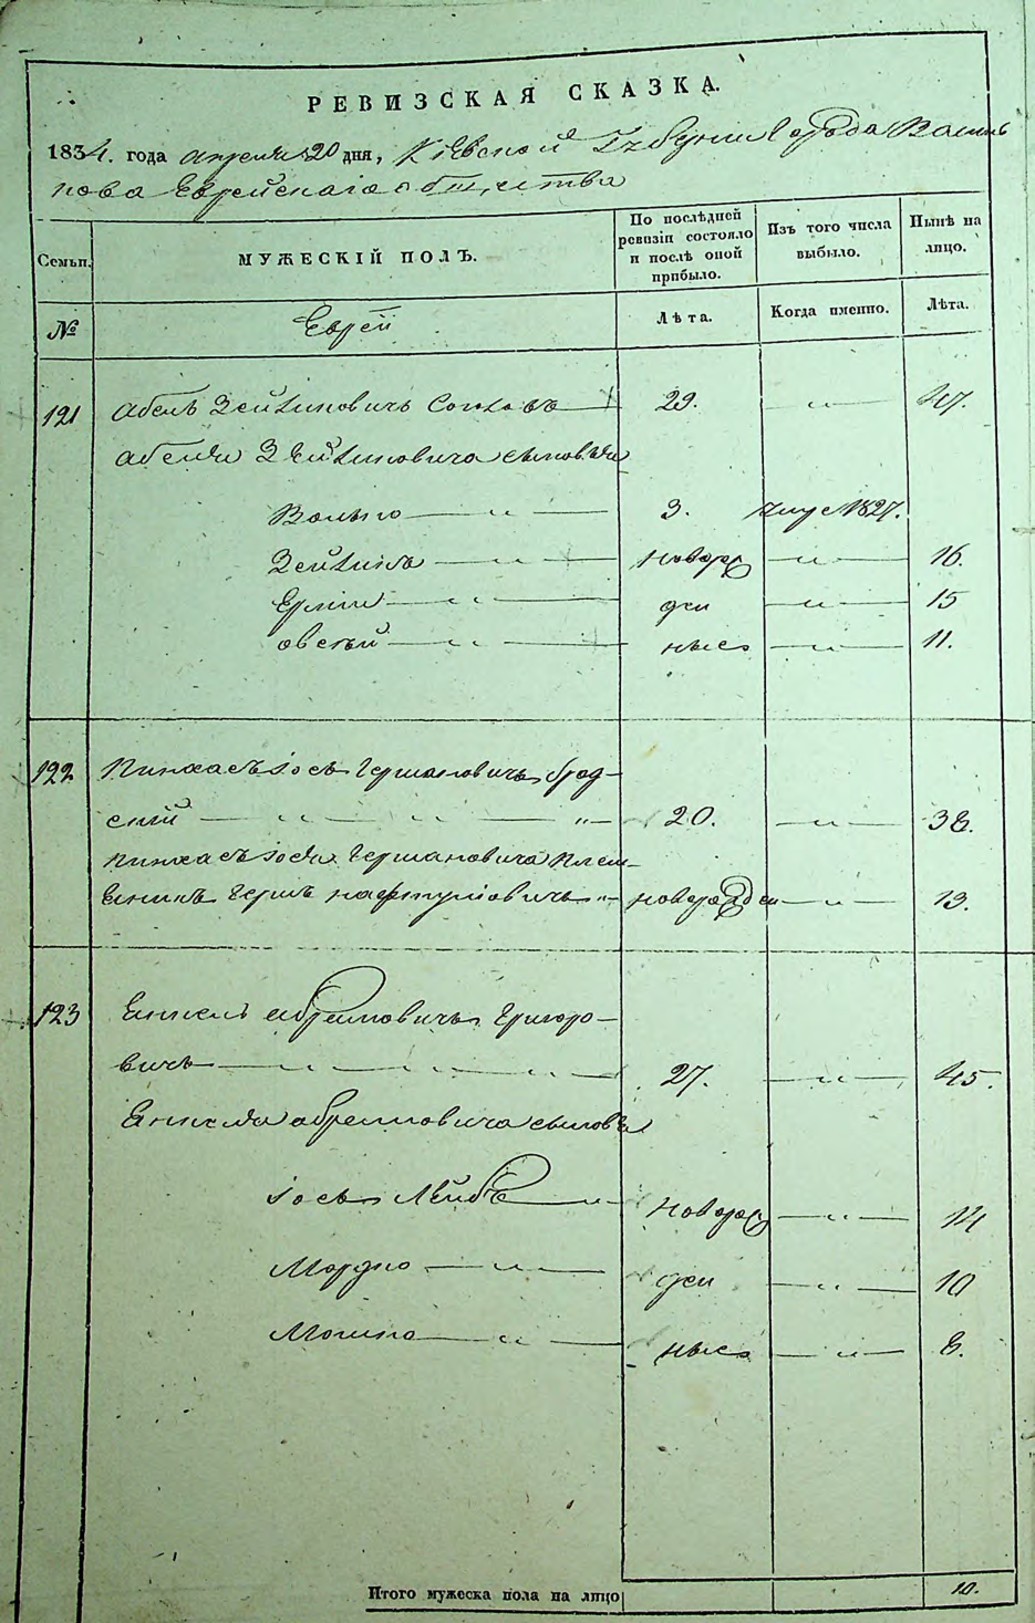 РЕВИЗСКАЯ СКАЗКА.
1834. года апреля 20 дня, Кіевской Губерніи Города Василь
кова Еврейскаго общества
Семьи.
МУЖЕСКІЙ ПОЛЪ.
По послѣдней ревизіи состояло и послѣ оной прибыло.
Изъ того числа выбыло.
Нынѣ на лицо.
№
Еврей
Лѣта.
Когда именно.
Лѣта.
121 Абель Зейликовичъ 29. — „ — 47.
Абеля Зейликовича сыновья
Волько — „ — 3. 1827.
Зейликъ — „ — новорож — „ — 16.
— „ — ден — „ — 15
Овсей — „ — ные — „ — 11.
122 Пинхасъ Іось Гершковичъ Брод-
скій — „ — „ — „ — 20. — „ — 38.
Пинхасъ Іося Гершковича плем-
еникъ Гершъ Нафтуловичъ „ — новорожден — „ — 13.
123 Янкель Абрамовичъ Григоро-
вичъ — „ — „ — „ — 27. — „ — 45.
Янкеля Абрамовича сыновья
Іось Лейба — „ — новорож — „ — 14
Мордко — „ — ден — „ — 10
Мошко — „ — ные — „ — 8.
Итого мужеска пола на лицо 10.